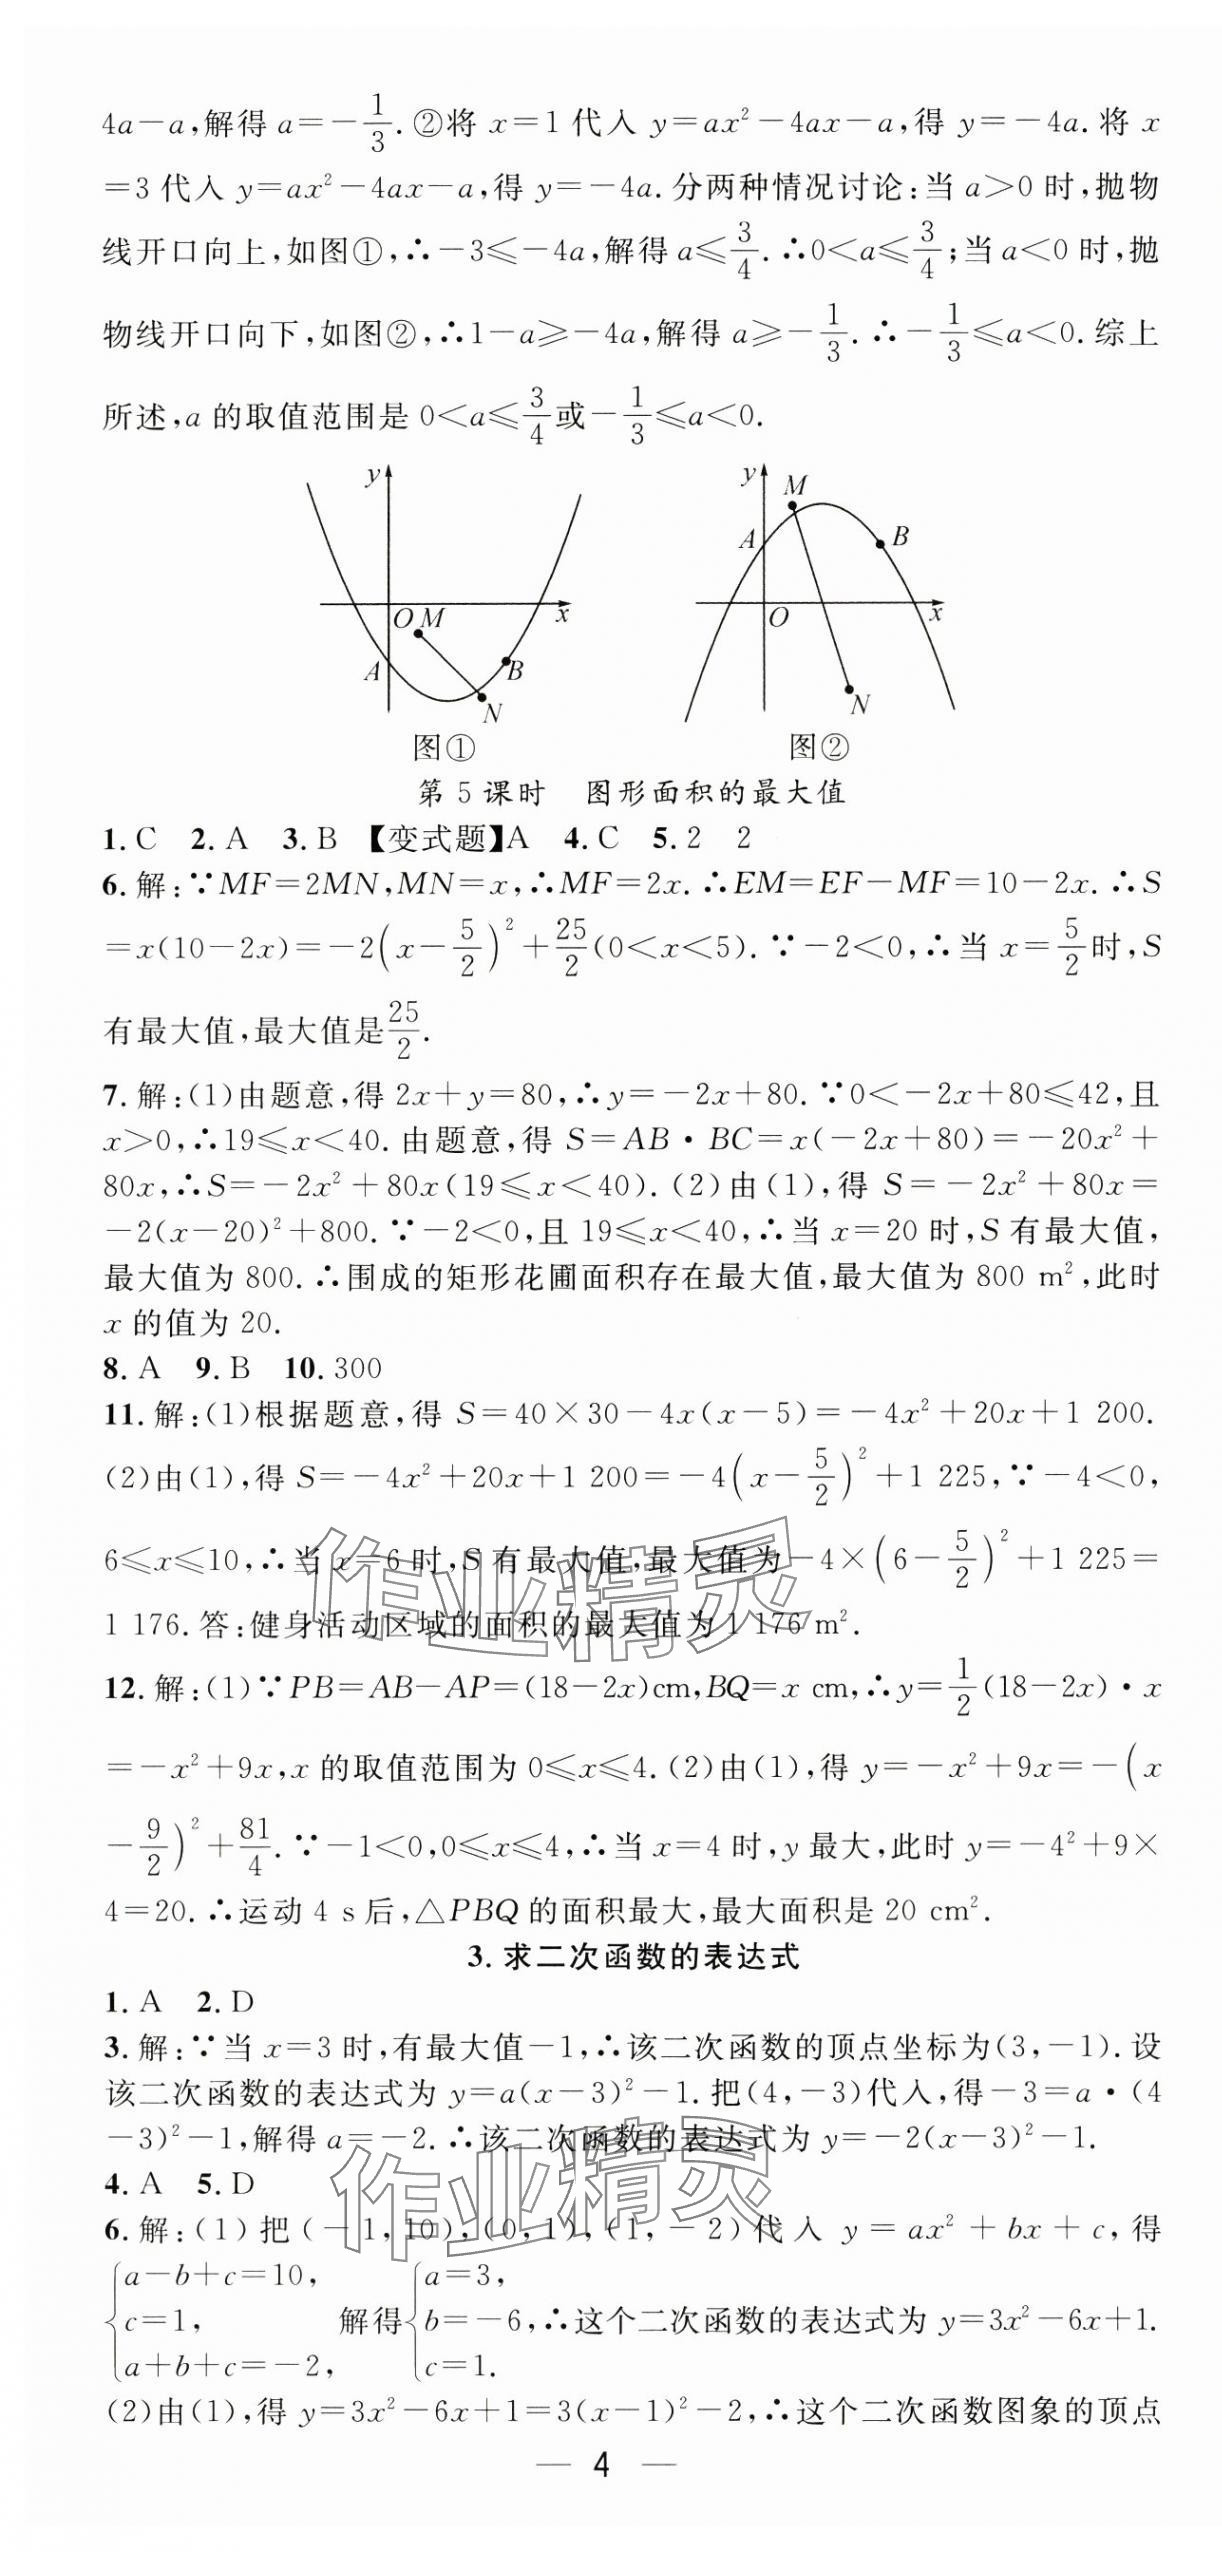 4a-a,解得 a=-1/3.②将 x=1 代入 y=ax²-4ax-a,得 y=-4a.将 x
=3 代入 y=ax²-4ax-a,得 y=-4a.分两种情况讨论:当 a>0 时,抛物
线开口向上,如图①,∴-3≤-4a,解得 a≤3/4.∴0<a≤3/4;当 a<0 时,抛
物线开口向下,如图②,∴1-a≥-4a,解得 a≥-1/3.∴-1/3≤a<0.综上
所述,a 的取值范围是 0<a≤3/4或-1/3≤a<0.
y O M x A B N
y M A B O x N
图① 图②
第 5 课时 图形面积的最大值
1.C 2.A 3.B 【变式题】A 4.C 5.2 2
6.解:∵MF=2MN,MN=x,∴MF=2x.∴EM=EF-MF=10-2x.∴S
=x(10-2x)=-2(x-5/2)²+25/2(0<x<5).∵-2<0,∴当 x=5/2时,S
有最大值,最大值是25/2.
7.解:(1)由题意,得 2x+y=80,∴y=-2x+80.∵0<-2x+80≤42,且
x>0,∴19≤x<40.由题意,得 S=AB·BC=x(-2x+80)=-20x²+
80x,∴S=-2x²+80x(19≤x<40).(2)由(1),得 S=-2x²+80x=
-2(x-20)²+800.∵-2<0,且 19≤x<40,∴当 x=20 时,S 有最大值,
最大值为 800.∴围成的矩形花圃面积存在最大值,最大值为 800 m²,此时
x 的值为 20.
8.A 9.B 10.300
11.解:(1)根据题意,得 S=40×30-4x(x-5)=-4x²+20x+1 200.
(2)由(1),得 S=-4x²+20x+1 200=-4(x-5/2)²+1 225,∵-4<0,
6≤x≤10,∴当 x=6 时,S 有最大值,最大值为-4×(6-5/2)²+1 225=
1 176.答:健身活动区域的面积的最大值为 1 176 m².
12.解:(1)∵PB=AB-AP=(18-2x)cm,BQ=x cm,∴y=1/2(18-2x)·x
=-x²+9x,x 的取值范围为 0≤x≤4.(2)由(1),得 y=-x²+9x=-(x
-9/2)²+81/4.∵-1<0,0≤x≤4,∴当 x=4 时,y 最大,此时 y=-4²+9×
4=20.∴运动 4 s 后,△PBQ 的面积最大,最大面积是 20 cm².
3.求二次函数的表达式
1.A 2.D
3.解:∵当 x=3 时,有最大值-1,∴该二次函数的顶点坐标为(3,-1).设
该二次函数的表达式为 y=a(x-3)²-1.把(4,-3)代入,得-3=a·(4
-3)²-1,解得 a=-2.∴该二次函数的表达式为 y=-2(x-3)²-1.
4.A 5.D
6.解:(1)把(-1,10),(0,1),(1,-2)代入 y=ax²+bx+c,得
{a-b+c=10, c=1, a+b+c=-2, 解得{a=3, b=-6, c=1. ∴这个二次函数的表达式为 y=3x²-6x+1.
(2)由(1),得 y=3x²-6x+1=3(x-1)²-2,∴这个二次函数图象的顶点
— 4 —
作业精灵
作业精灵